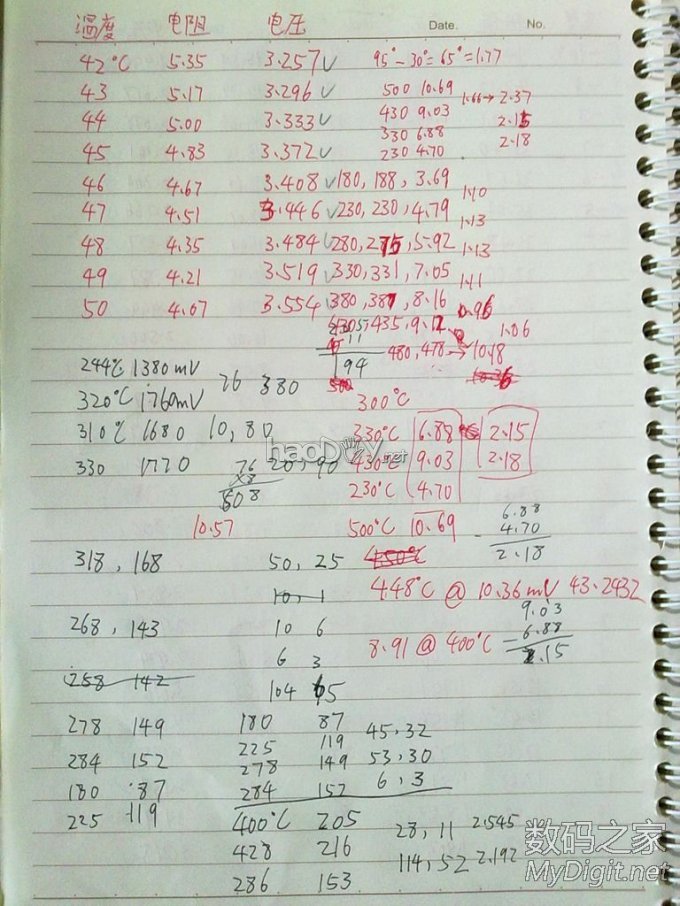 温度 电阻 电压 Date. No.
42°C 5.35 3.257 95°-30°=65°=1.77
43 5.17 3.296 500 10.69 1.66→2.37
44 5.00 3.333 430 9.03 2.15
330 6.88 2.18
45 4.83 3.372 230 4.70
46 4.67 3.408 180,188,3.69
1.10
47 4.51 3.446 230,230,4.79
1.13
48 4.35 3.484 280,275,5.92 1.13
49 4.21 3.519 330,331,7.05
1.11
50 4.07 3.554 380,381,8.16
0.96
435,9.12
1.06
480,478→10.18
94
244℃ 1380mV
76 380
320℃ 1760mV 300℃
310℃ 1680 10,80 330℃ 6.88 2.15
haoDIY.net
330 1770 76 20,90 430℃ 9.03 2.18
×8
608 230℃ 4.70
10.57 500℃ 10.69
6.88
4.70
2.18
318,168 50,25 450℃
10,1 448℃ @ 10.36mV 43.2432
268,143 10 6 8.91 @ 400℃
9.03
-6.88
2.15
6 3
258 142
104 65
278 149 180 87 45,32
225 119
284 152 278 149 53,30
180 87 284 152 6,3
225 119 400℃ 205 28,11 2.545
428 216 114,52 2.192
286 153
数码之家
MyDigit.net